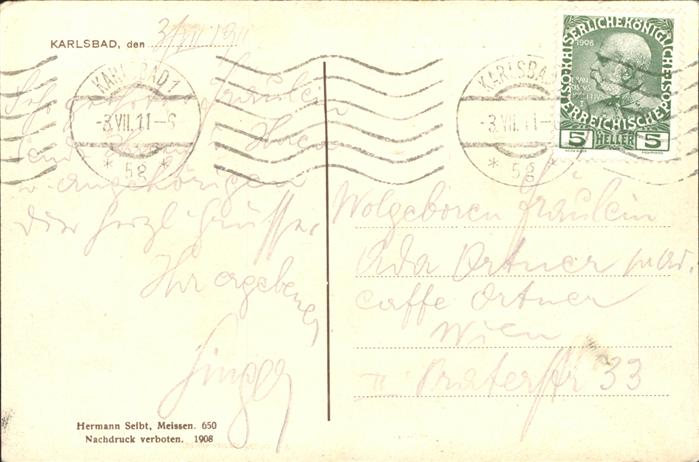 KARLSBAD, den 3/VII 1911
KARLSBAD 1
-3.VII.11-6
* 5g *
KARLSBAD
-3.VII.11-
* 5g *
KAISERLICHE KÖNIGLICHE POST
ÖSTERREICHISCHE
1908
5 HELLER 5
Sehr geehrtes Fräulein
und
u. angehörigen
die herzl. Grüsse
Ihr ergebener
Wolgeboren Fräulein
Ada Ortner
caffe Ortner
Wien
II Praterstr 33
Hermann Seibt, Meissen. 650
Nachdruck verboten. 1908